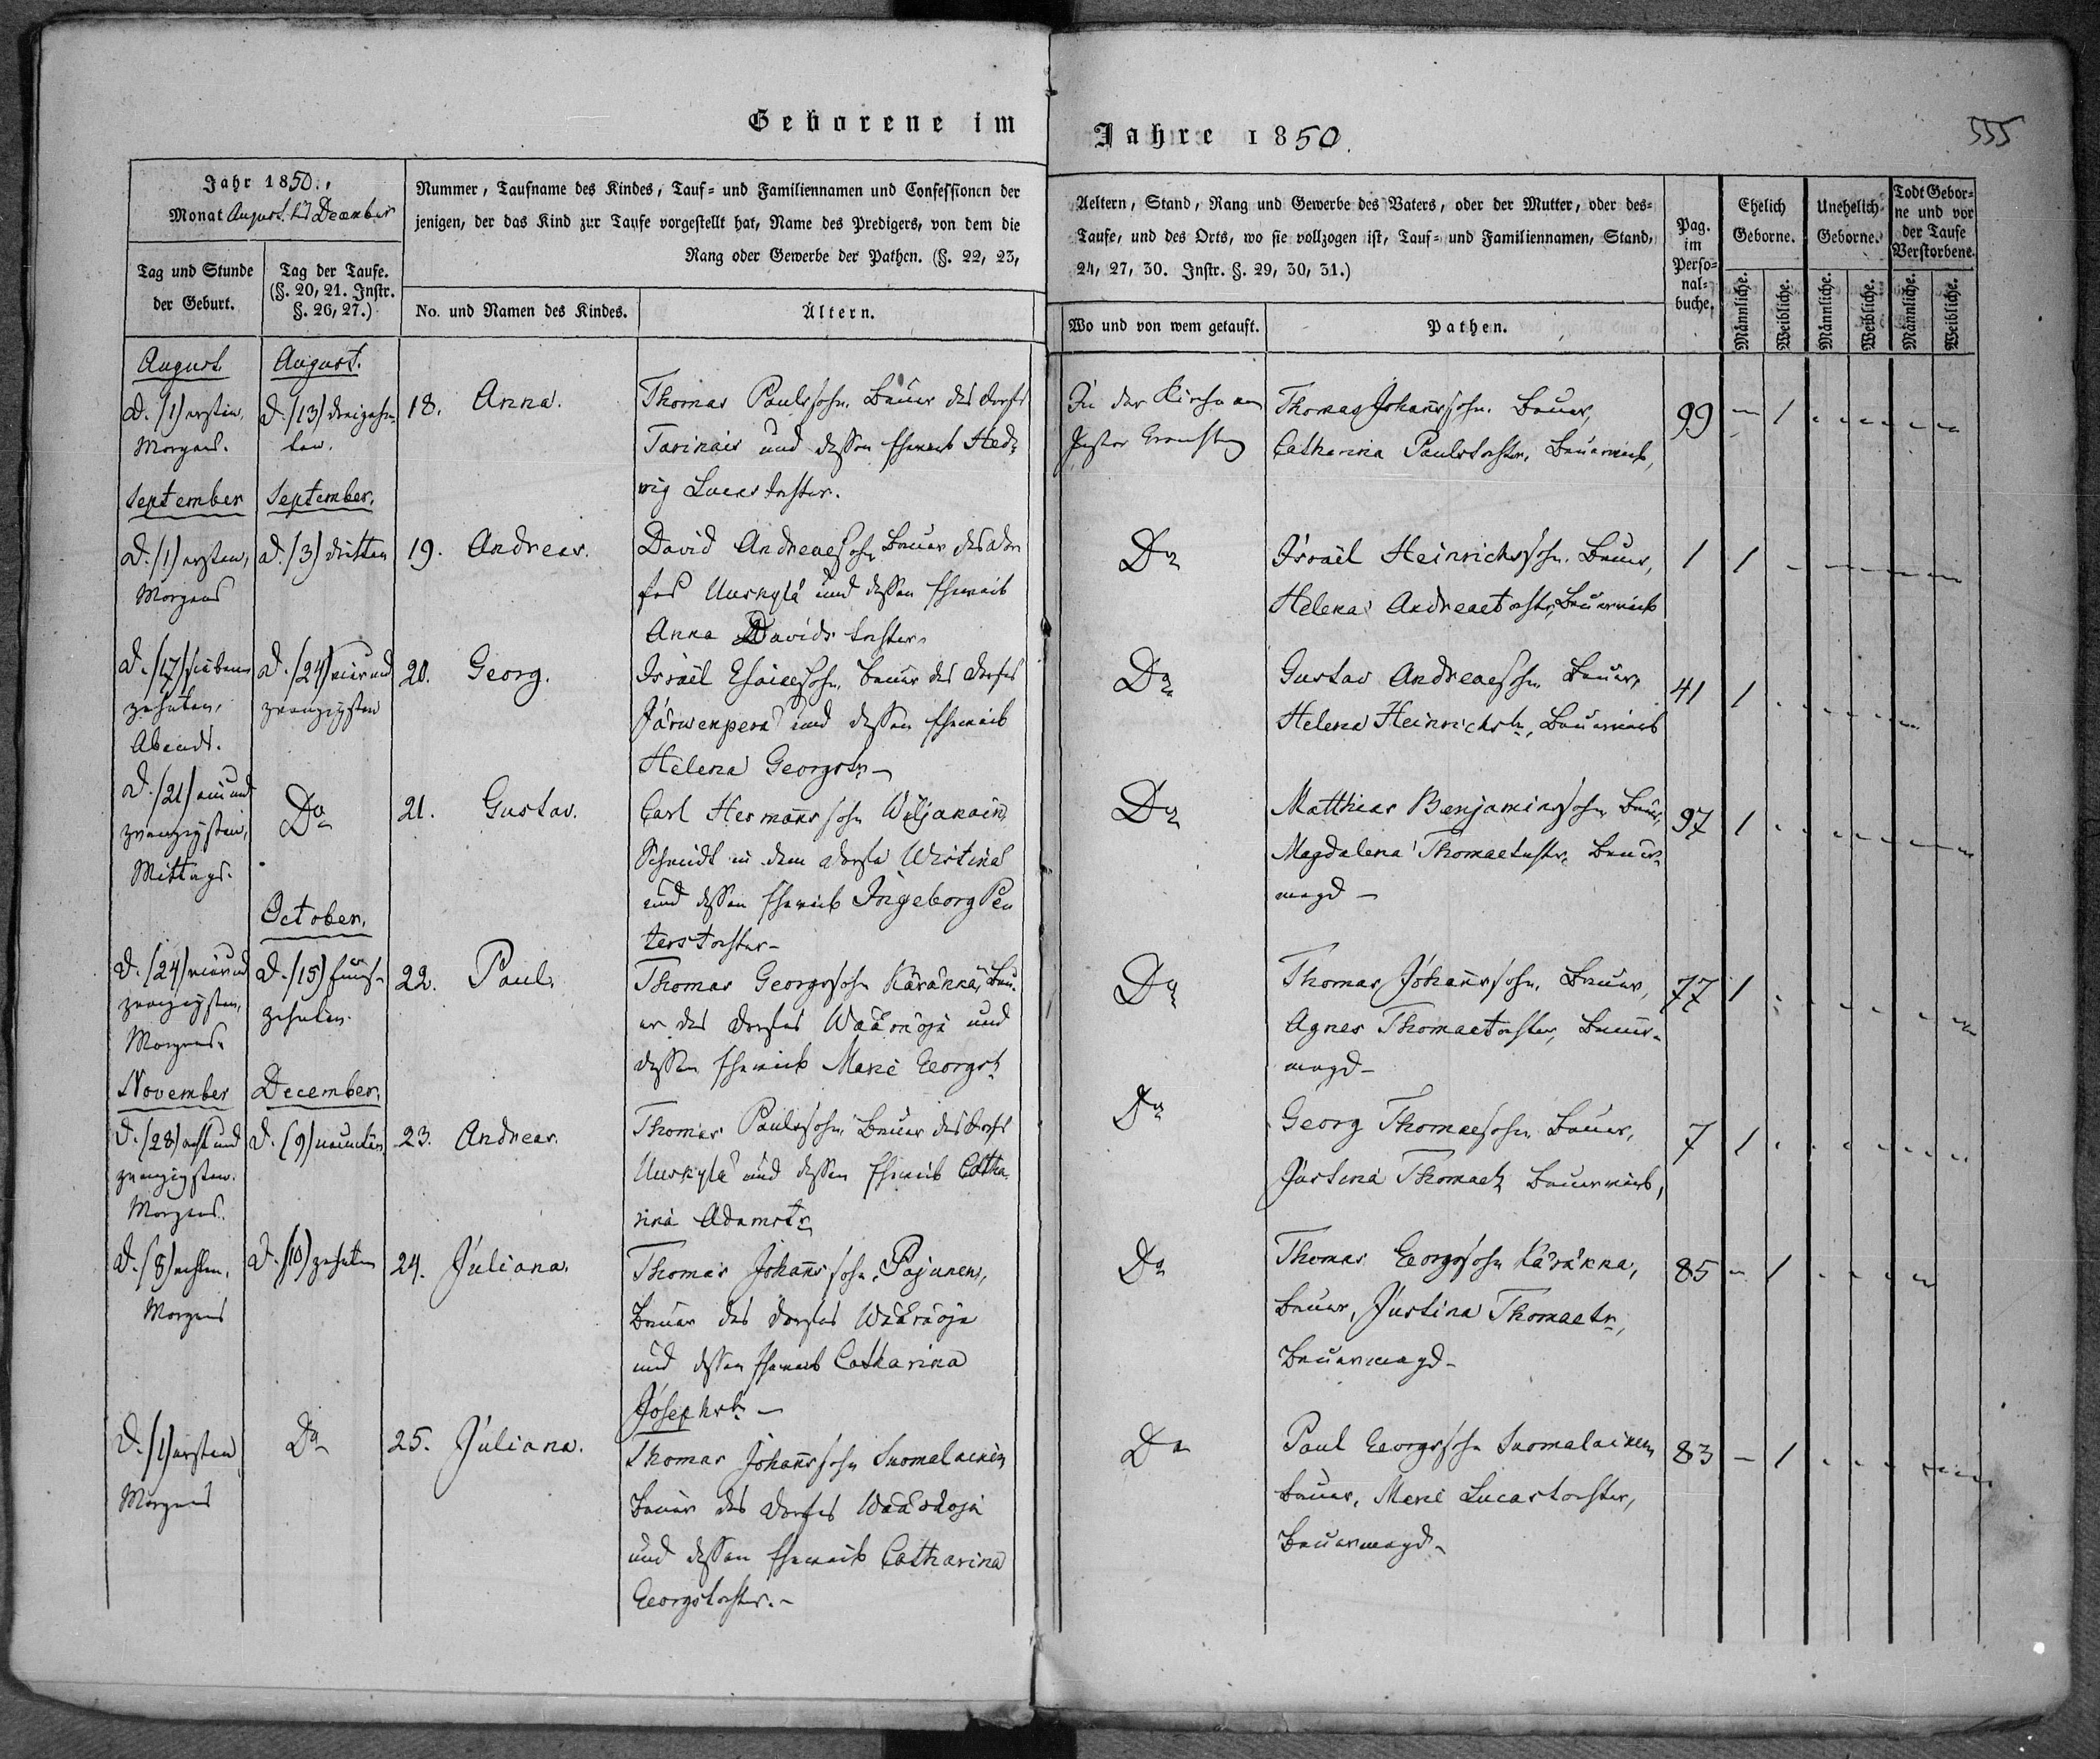 Geborene im
Jahre 1850.
555
Jahr 1850.
Monat August bis December
Nummer, Taufname des Kindes, Tauf- und Familiennamen und Confessionen der
jenigen, der das Kind zur Taufe vorgestellt hat, Name des Predigers, von dem die
Rang oder Gewerbe der Pathen. (§. 22, 23,
Tag und Stunde
der Geburt.
Tag der Taufe.
(§. 20, 21. Instr.
§. 26, 27.)
No. und Namen des Kindes.
Ältern.
Aeltern, Stand, Rang und Gewerbe des Vaters, oder der Mutter, oder des-
Taufe, und des Orts, wo sie vollzogen ist, Tauf- und Familiennamen, Stand,
24, 27, 30. Instr. §. 29, 30, 31.)
Wo und von wem getauft.
Pathen.
Pag.
im
Perso-
nal-
buche.
Ehelich
Geborne.
Unehelich
Geborne.
Todt Gebor-
ne und vor
der Taufe
Verstorbene.
Männliche.
Weibliche.
Männliche.
Weibliche.
Männliche.
Weibliche.
August.
d. (1) ersten,
Morgens.
August.
d. (13) dreizehn-
ten.
18. Anna.
Thomas Paulssohn, Bauer des Dorfs
Tarinais und dessen Eheweib Hed-
wig Lucastochter.
In der Kirche am
Pastor
Thomas Johannssohn, Bauer,
Catharina Paulstochter, Bauerweib,
99 – 1
September
d. (1) ersten,
Morgens
September.
d. (3) dritten
19. Andreas.
David Andreaesohn Bauer des Dor
fes Uuskylä und dessen Eheweib
Anna Davidstochter
Do
Israël Heinrichssohn, Bauer,
Helena Andreaetochter, Bauerweib
1 1
d. (17) sieben
zehnten,
Abends.
d. (24) vier und
zwanzigsten
20. Georg.
Israël Esaiaesohn, Bauer des Dorfes
Järwenperä und dessen Eheweib
Helena Georgstr
Do
Gustav Andreaesohn Bauer,
Helena Heinrichstr, Bauerweib
41 1
d. (21) ein und
zwanzigsten,
Mittags.
Do
21. Gustav.
Carl Hermannssohn Wiljanain
Schmidt in dem Dorfe Wirtina
und dessen Eheweib Ingeborg Pe
terstochter
Do
Matthias Benjaminssohn Bauer,
Magdalena Thomaetochtr, Bauer-
magd –
97 1
d. (24) vier und
zwanzigsten,
Morgens.
October.
d. (15) fünf-
zehnten.
22. Paul.
Thomas Georgssohn Käräkkä, Bau-
er des Dorfes Wääräoja und
dessen Eheweib Marie Georgstr
Do
Thomas Johannssohn, Bauer,
Agnes Thomaetochter, Bauer-
magd –
77 1
November
d. (28) acht und
zwanzigsten.
Morgens.
December.
d. (9) neunten
23. Andreas.
Thomas Paulssohn Bauer des Dorfs
Uuskylä und dessen Eheweib Catha-
rina Adamstr
Do
Georg Thomaesohn Bauer,
Justina Thomaetr Bauerweib,
7 1
d. (8) achten,
Morgens
d. (10) zehnten
24. Juliana.
Thomas Johannssohn, Pajunen,
Bauer des Dorfes Wääräoja
und dessen Eheweib Catharina
Josephstr –
Do
Thomas Georgssohn Käräkka,
Bauer, Justina Thomaetr,
Bauermagd –
85 – 1
d. (1) ersten
Morgens
Do
25. Juliana.
Thomas Johannssohn Suomalainen
Bauer des Dorfes Wääräoja
und dessen Eheweib Catharina
Georgstochter. –
Do
Paul Georgssohn Suomalainen
Bauer, Marie Lucastochter,
Bauermagd –
83 – 1